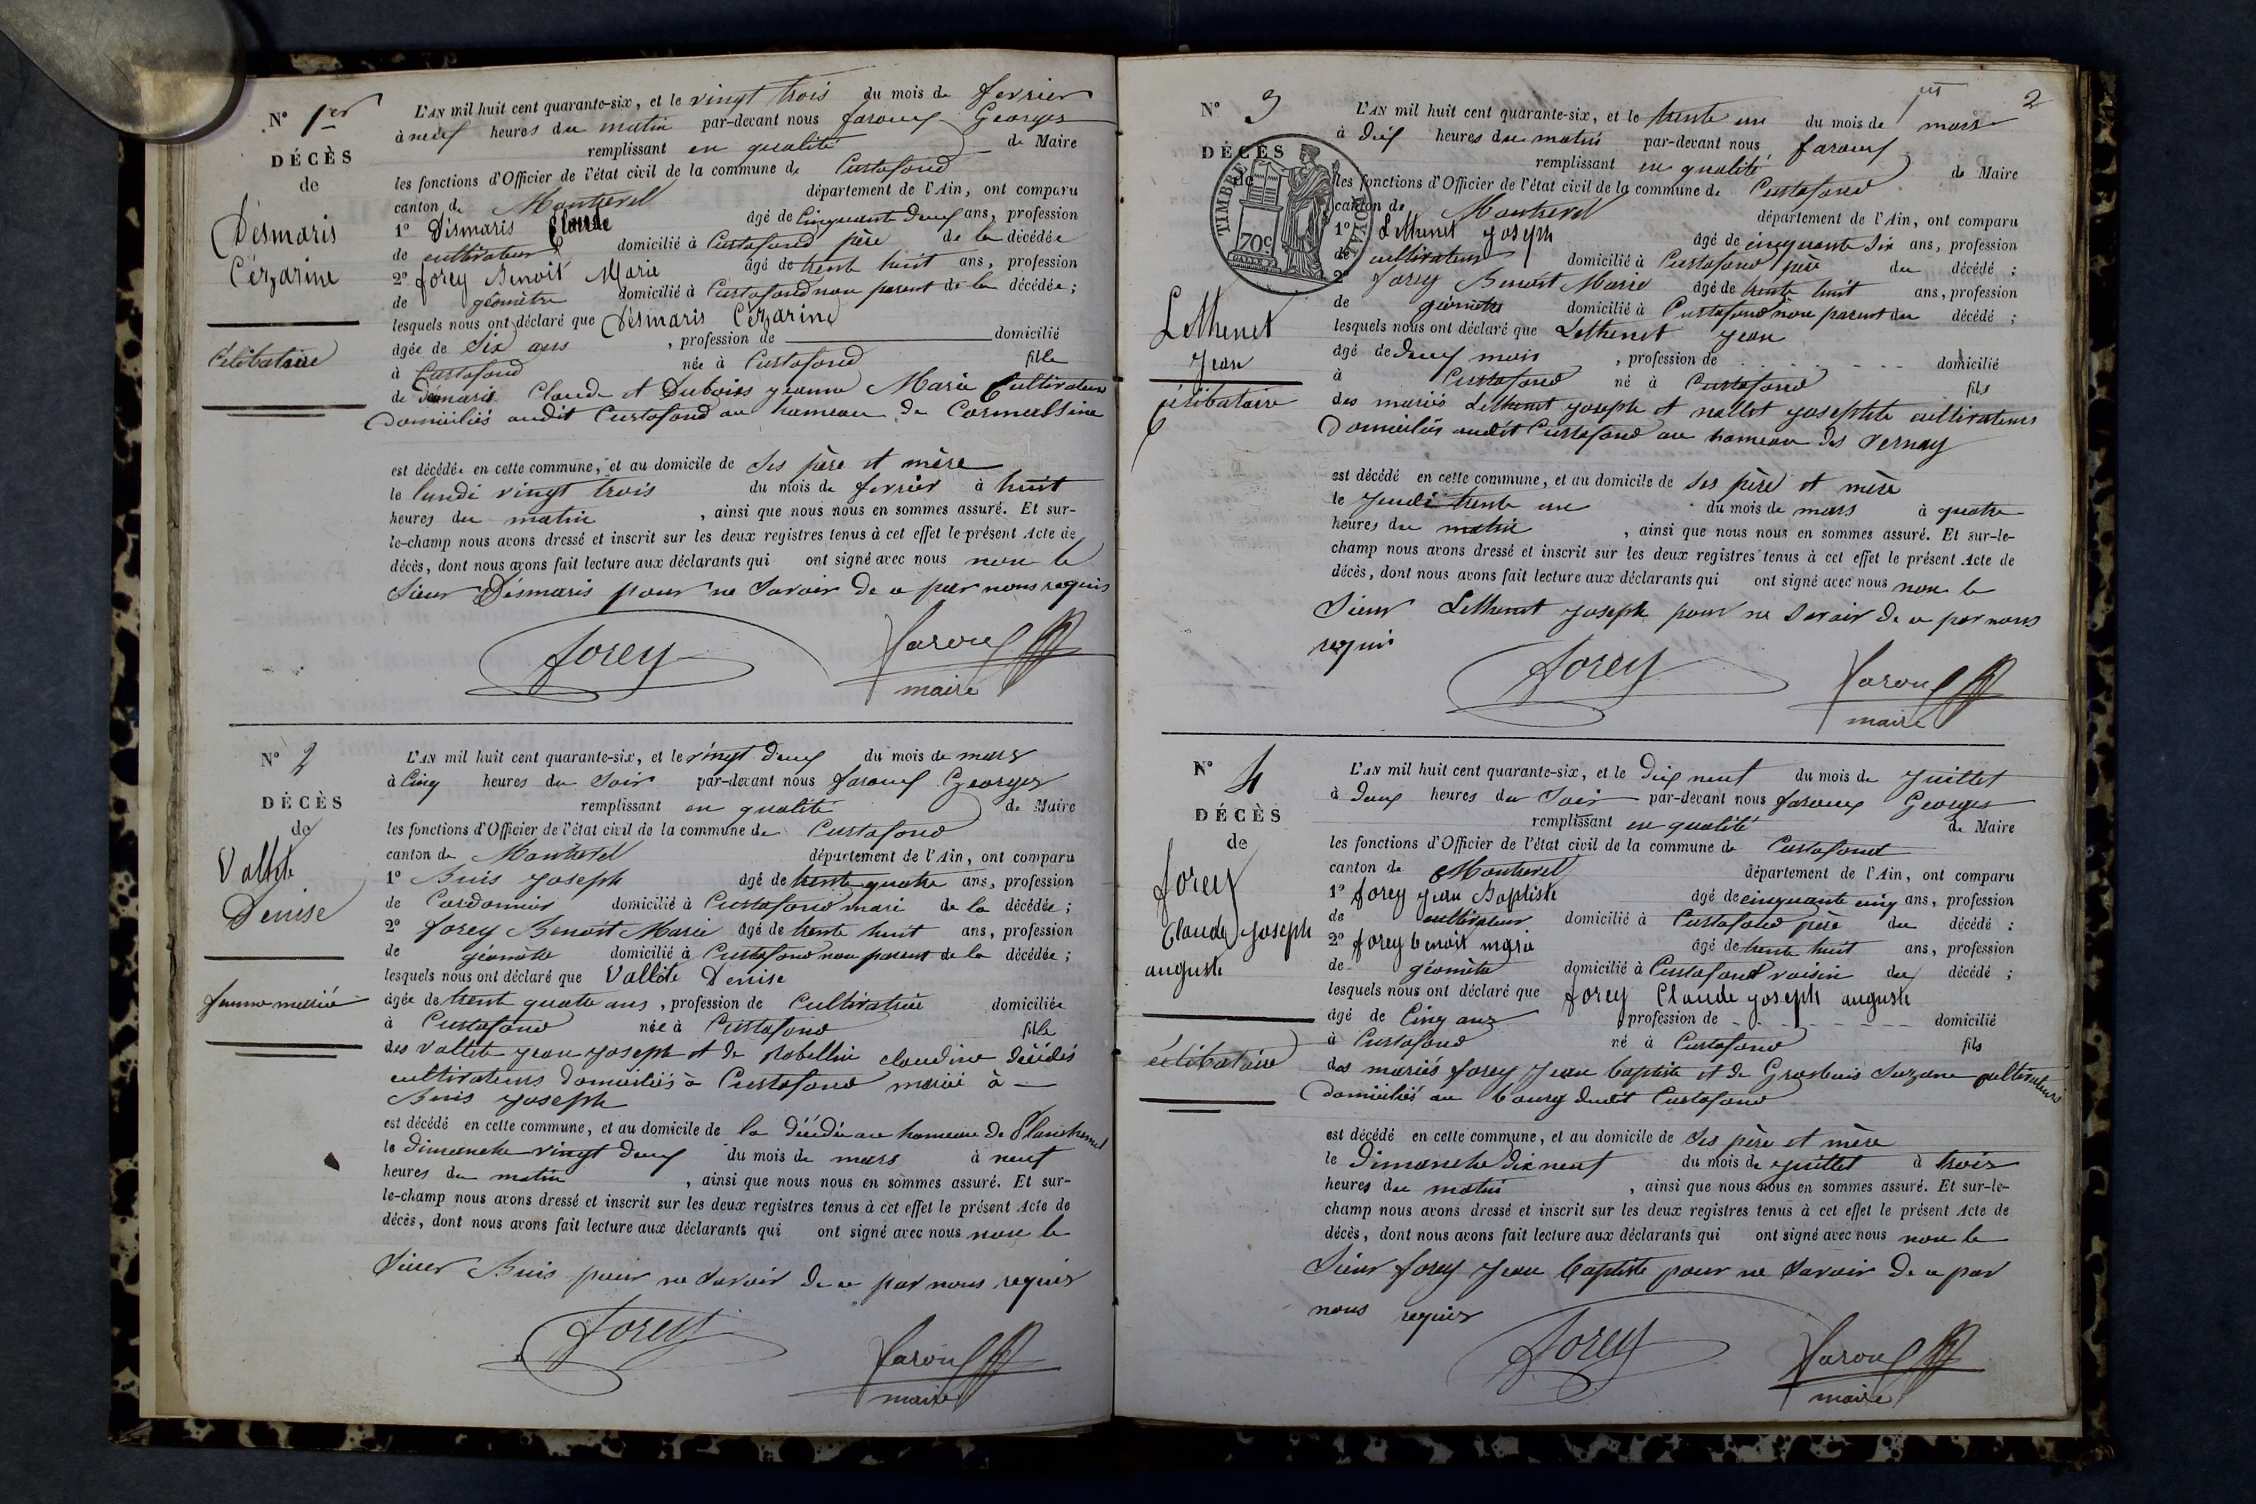 N° 1er
DÉCÈS
de
Désmaris
Cézarine
Célibataire
L'AN mil huit cent quarante-six, et le vingt trois du mois de fevrier
à neuf heures du matin par-devant nous faroux Georges
remplissant en qualité de Maire
les fonctions d'Officier de l'état civil de la commune de Curtafond
canton de Montrevel département de l'Ain, ont comparu
1° Désmaris Claude âgé de Cinquante Deux ans, profession
de cultivateur domicilié à Curtafond père de la décédée
2° forey Benoit Marie âgé de trente huit ans, profession
de géomètre domicilié à Curtafond non parent de la décédée;
lesquels nous ont déclaré que Désmaris Cézarine
âgée de Six ans , profession de domicilié
à Curtafond née à Curtafond fille
de Démaris Claude et Dubois jeanne Marie Cultivateurs
Domiciliés audit Curtafond au hameau de
est décédée en cette commune, et au domicile de Ses père et mère
le lundi vingt trois du mois de fevrier à huit
heures du matin , ainsi que nous nous en sommes assuré. Et sur-
le-champ nous avons dressé et inscrit sur les deux registres tenus à cet effet le présent Acte de
décès, dont nous avons fait lecture aux déclarants qui ont signé avec nous non le
Sieur Désmaris pour ne Savoir de ce par nous requis
forey
faroux
maire
N° 2
DÉCÈS
de
Vallete
Denise
femme mariée
L'AN mil huit cent quarante-six, et le vingt deux du mois de mars
à Cinq heures du Soir par-devant nous faroux Georges
remplissant en qualité de Maire
les fonctions d'Officier de l'état civil de la commune de Curtafond
canton de Montrevel département de l'Ain, ont comparu
1° Buis joseph âgé de trente quatre ans, profession
de Cordonnier domicilié à Curtafond mari de la décédée;
2° forey Benoit Marie âgé de trente huit ans, profession
de géomètre domicilié à Curtafond non parent de la décédée;
lesquels nous ont déclaré que Vallete Denise
âgée de trent quatre ans , profession de Cultivatrice domiciliée
à Curtafond née à Curtafond fille
des Vallete jean joseph et de Robellin claudine décédés
cultivateurs domiciliés à Curtafond mariée à
Buis joseph
est décédé en cette commune, et au domicile de la décédée au hameau de
le Dimanche vingt deux du mois de mars à neuf
heures du matin , ainsi que nous nous en sommes assuré. Et sur-
le-champ nous avons dressé et inscrit sur les deux registres tenus à cet effet le présent Acte de
décès, dont nous avons fait lecture aux déclarants qui ont signé avec nous non le
Sieur Buis pour ne Savoir de ce par nous requis
forey
faroux
maire
2
N° 3
DÉCÈS
de
TIMBRE ROYAL
70c
Lethenet
Jean
célibataire
L'AN mil huit cent quarante-six, et le trente un du mois de mars
à dix heures du matin par-devant nous faroux
remplissant en qualité de Maire
les fonctions d'Officier de l'état civil de la commune de Curtafond
canton de Montrevel département de l'Ain, ont comparu
1° Lethenet joseph âgé de cinquante Six ans, profession
de cultivateur domicilié à Curtafond père du décédé ;
2° forey Benoit Marie âgé de trente huit ans, profession
de géomètre domicilié à Curtafond non parent du décédé ;
lesquels nous ont déclaré que Lethenet Jean
âgé de deux mois , profession de domicilié
à Curtafond né à Curtafond fils
des mariés Lethenet joseph et nallet josephte cultivateurs
Domiciliés audit Curtafond au hameau des Vernay
est décédé en cette commune, et au domicile de Ses père et mère
le Jeudi trente un du mois de mars à quatre
heures du matin , ainsi que nous nous en sommes assuré. Et sur-le-
champ nous avons dressé et inscrit sur les deux registres tenus à cet effet le présent Acte de
décès, dont nous avons fait lecture aux déclarants qui ont signé avec nous non le
Sieur Lethenet joseph pour ne Savoir de ce par nous
requis
forey
faroux
maire
N° 4
DÉCÈS
de
forey
Claude joseph
auguste
célibataire
L'AN mil huit cent quarante-six, et le Dix neuf du mois de Juillet
à deux heures du Soir par-devant nous faroux Georges
remplissant en qualité de Maire
les fonctions d'Officier de l'état civil de la commune de Curtafond
canton de Montrevel département de l'Ain, ont comparu
1° forey jean Baptiste âgé de cinquante cinq ans, profession
de cultivateur domicilié à Curtafond père du décédé :
2° forey benoit marie âgé de trente huit ans, profession
de géomètre domicilié à Curtafond voisin du décédé ;
lesquels nous ont déclaré que forey Claude joseph auguste
âgé de Cinq ans , profession de domicilié
à Curtafond né à Curtafond fils
des mariés forey Jean baptiste et de Grosbuis Suzane cultivateurs
domiciliés au bourg dudit Curtafond
est décédé en cette commune, et au domicile de Ses père et mère
le Dimanche Dix neuf du mois de juillet à trois
heures du matin , ainsi que nous nous en sommes assuré. Et sur-le-
champ nous avons dressé et inscrit sur les deux registres tenus à cet effet le présent Acte de
décès, dont nous avons fait lecture aux déclarants qui ont signé avec nous non le
Sieur forey Jean baptiste pour ne Savoir de ce par
nous requis
forey
faroux
maire